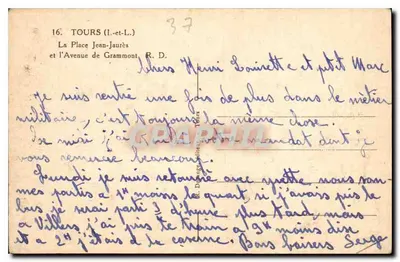 37
16. TOURS (I.-et-L.)
La Place Jean-Jaurès
et l'Avenue de Grammont. R. D.
Chers Henri Loirette et petit Marc
je suis rentré une fois de plus dans le métier
militaire, c'est toujours la même chose.
Ce midi j'ai mandat dont je
vous remercie beaucoup.
Lundi je suis retourné avec yvette nous som-
mes partis à 1H moins le quart, si j'avais pris le
bus je serai parti d'heure plus tard, mais
à Villers j'ai pris le train à 9H moins dix
et à 2H j'étais à la caserne. Bons baisers Serge